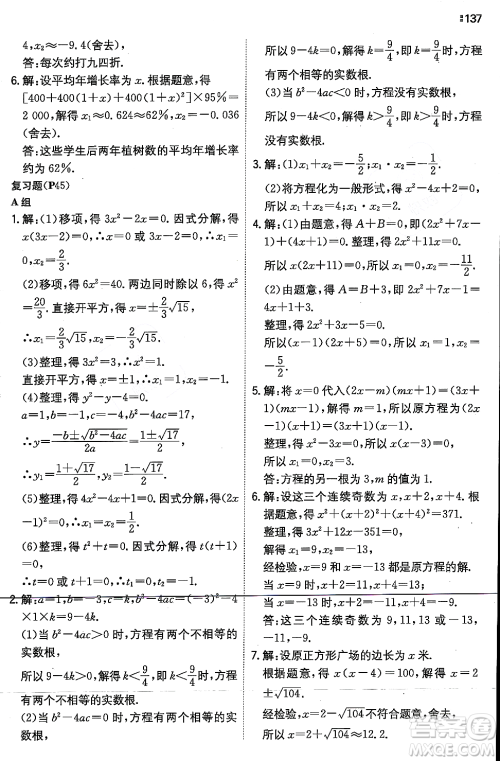 137
4,x₂≈-9.4(舍去),
答:每次约打九四折.
6. 解:设平均年增长率为 x. 根据题意,得
[400+400(1+x)+400(1+x)²]×95%=
2 000,解得 x₁≈0.624≈62%,x₂≈-0.036
(舍去).
答:这些学生后两年植树数的平均年增长率
约为 62%.
复习题(P45)
A 组
1. 解:(1)移项,得 3x²-2x=0. 因式分解,得
x(3x-2)=0,∴x=0 或 3x-2=0,∴x₁
=0,x₂=2/3.
(2)移项,得 6x²=40. 两边同时除以 6,x²=
20/3. 直接开平方,得 x=±2/3√15,
∴x₁=2/3√15,x₂=-2/3√15.
(3)整理,得 3x²=3,x²=1.
直接开平方,得 x=±1,∴x₁=1,x₂=-1.
(4)整理,得 y²-y-4=0.
a=1,b=-1,c=-4,b²-4ac=17>0,
∴y=(-b±√(b²-4ac))/2a=(1±√17)/2,
∴y₁=(1+√17)/2,y₂=(1-√17)/2.
(5)整理,得 4x²-4x+1=0. 因式分解,得(2x
-1)²=0,∴x₁=x₂=1/2.
(6)整理,得 t²+t=0. 因式分解,得 t(t+1)
=0,∴t=0 或 t+1=0,∴t₁=0,t₂=-1.
2. 解:a=1,b=-3,c=k,b²-4ac=(-3)²-4
×1×k=9-4k.
(1)当 b²-4ac>0 时,方程有两个不相等的
实数根,
所以 9-4k>0,解得 k<9/4,即 k<9/4 时,方程
有两个不相等的实数根.
(2)当 b²-4ac=0 时,方程有两个相等的实
数根,
所以 9-4k=0,解得 k=9/4,即 k=9/4 时,方程
有两个相等的实数根.
(3)当 b²-4ac<0 时,方程没有实数根,
所以 9-4k<0,解得 k>9/4,即 k>9/4 时,方程
没有实数根.
3. 解:(1)x₁=-5/2,x₂=5/2.
(2)方程化为一般形式,得
所以 x₁=
4. 解:(1)由题意,得 A+B=0,即(2x²+7x-
1)+(4x+1)=0.
整理,得 2x²+11x=0,所以 x₁=0,x₂=-11/2.
(2)由题意,得 A=B+3,即 2x²+7x-1=
4x+1+3.
整理,得 2x²+3x-5=0,所以 x₁=1,x₂=
-5/2.
5. 解:将 x=0 代入(2x-m)(mx+1)=(3x+
1)(mx-1),解得 m=1,所以原方程为(2x-
1)(x+1)=(3x+1)(x-1).
整理,得 x²-3x=0,所以 x₁=0,x₂=3.
答:方程的另一个根为 3,m 的值为 1.
6. 解:设这三个连续奇数为 x,x+2,x+4. 根据
题意,得 x²+(x+2)²+(x+4)²=371.
整理,得 x²+4x-117=0.
解得 x₁=9,x₂=-13.
经检验,x₁=9,x₂=-13 都是原方程的解.
当 x=9 时,x+2=11,x+4=13.
当 x=-13 时,x+2=-11,x+4=-9.
答:这三个连续奇数为 9,11,13 或-13,
-11,-9.
7. 解:设原正方形广场的边长为 x 米.
根据题意,得 x(x-4)=100,解得 x=2
±√104.
经检验,x=2-√104不符合题意,舍去,
所以 x=2+√104≈12.2.
答案圈
MXQE.COM